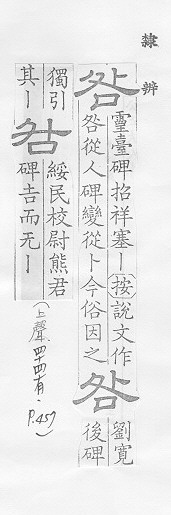 隸辨
咎
靈臺碑招祥塞丨按說文作
咎從人碑變從卜今俗因之
咎
劉寬
後碑
獨引
其丨
咎
綏民校尉熊君
碑吉而无丨
(上聲四十四有, P.457)